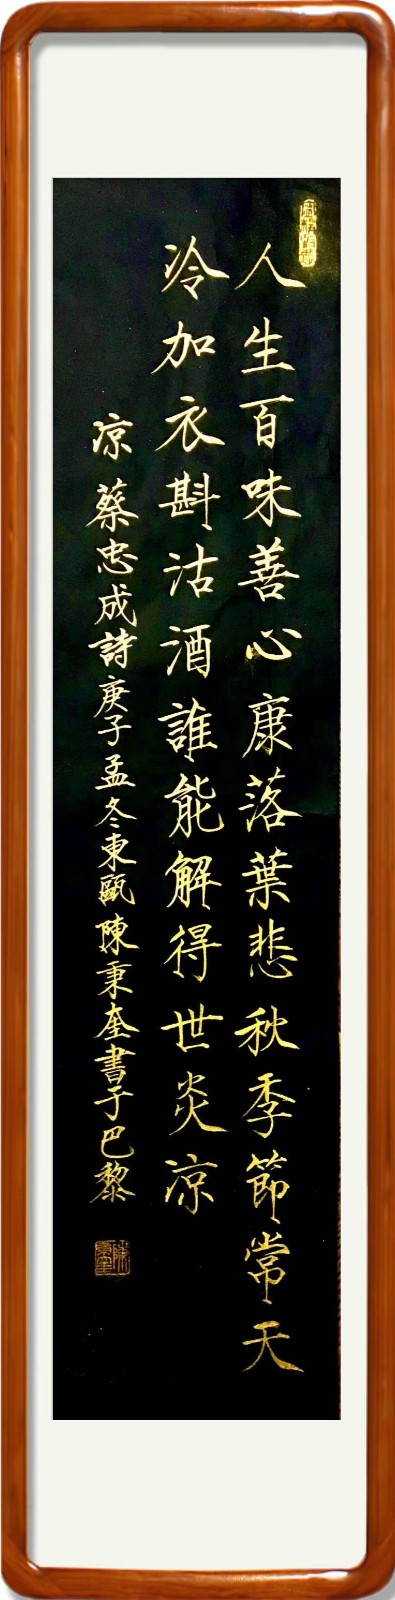 人生百味善心康落葉悲秋季節常天
冷加衣斟沽酒誰能解得世炎涼
凉蔡忠成詩庚子孟冬東甌陳秉奎書于巴黎